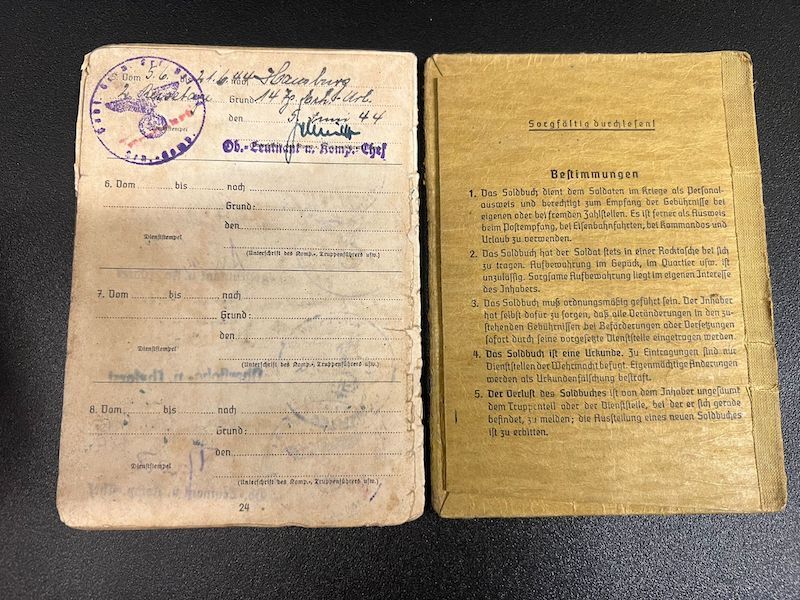 Vom 5.6. bis 21.6.44 nach Hamburg
Grund: 14 Tg. Erh.-Url.
den 5. Juni 44
Dienststempel
Ob.-Leutnant u. Komp.-Chef
6. Vom bis nach
Grund:
den
Dienststempel
(Unterschrift des Komp.-, Truppenführers usw.)
7. Vom bis nach
Grund:
den
Dienststempel
(Unterschrift des Komp.-, Truppenführers usw.)
8. Vom bis nach
Grund:
den
Dienststempel
(Unterschrift des Komp.-, Truppenführers usw.)
24
Sorgfältig durchlesen!
Bestimmungen
1. Das Soldbuch dient dem Soldaten im Kriege als Personal-
ausweis und berechtigt zum Empfang der Gebührnisse bei
eigenen oder bei fremden Zahlstellen. Es ist ferner als Ausweis
beim Postempfang, bei Eisenbahnfahrten, bei Kommandos und
Urlaub zu verwenden.
2. Das Soldbuch hat der Soldat stets in einer Rocktasche bei sich
zu tragen. Aufbewahrung im Gepäck, im Quartier usw. ist
unzulässig. Sorgsame Aufbewahrung liegt im eigenen Interesse
des Inhabers.
3. Das Soldbuch muß ordnungsmäßig geführt sein. Der Inhaber
hat selbst dafür zu sorgen, daß alle Veränderungen in den zu-
stehenden Gebührnissen bei Beförderungen oder Versetzungen
sofort durch seine vorgesetzte Dienststelle eingetragen werden.
4. Das Soldbuch ist eine Urkunde. Zu Eintragungen sind nur
Dienststellen der Wehrmacht befugt. Eigenmächtige Änderungen
werden als Urkundenfälschung bestraft.
5. Der Verlust des Soldbuches ist von dem Inhaber ungesäumt
dem Truppenteil oder der Dienststelle, bei der er sich gerade
befindet, zu melden; die Ausstellung eines neuen Soldbuches
ist zu erbitten.